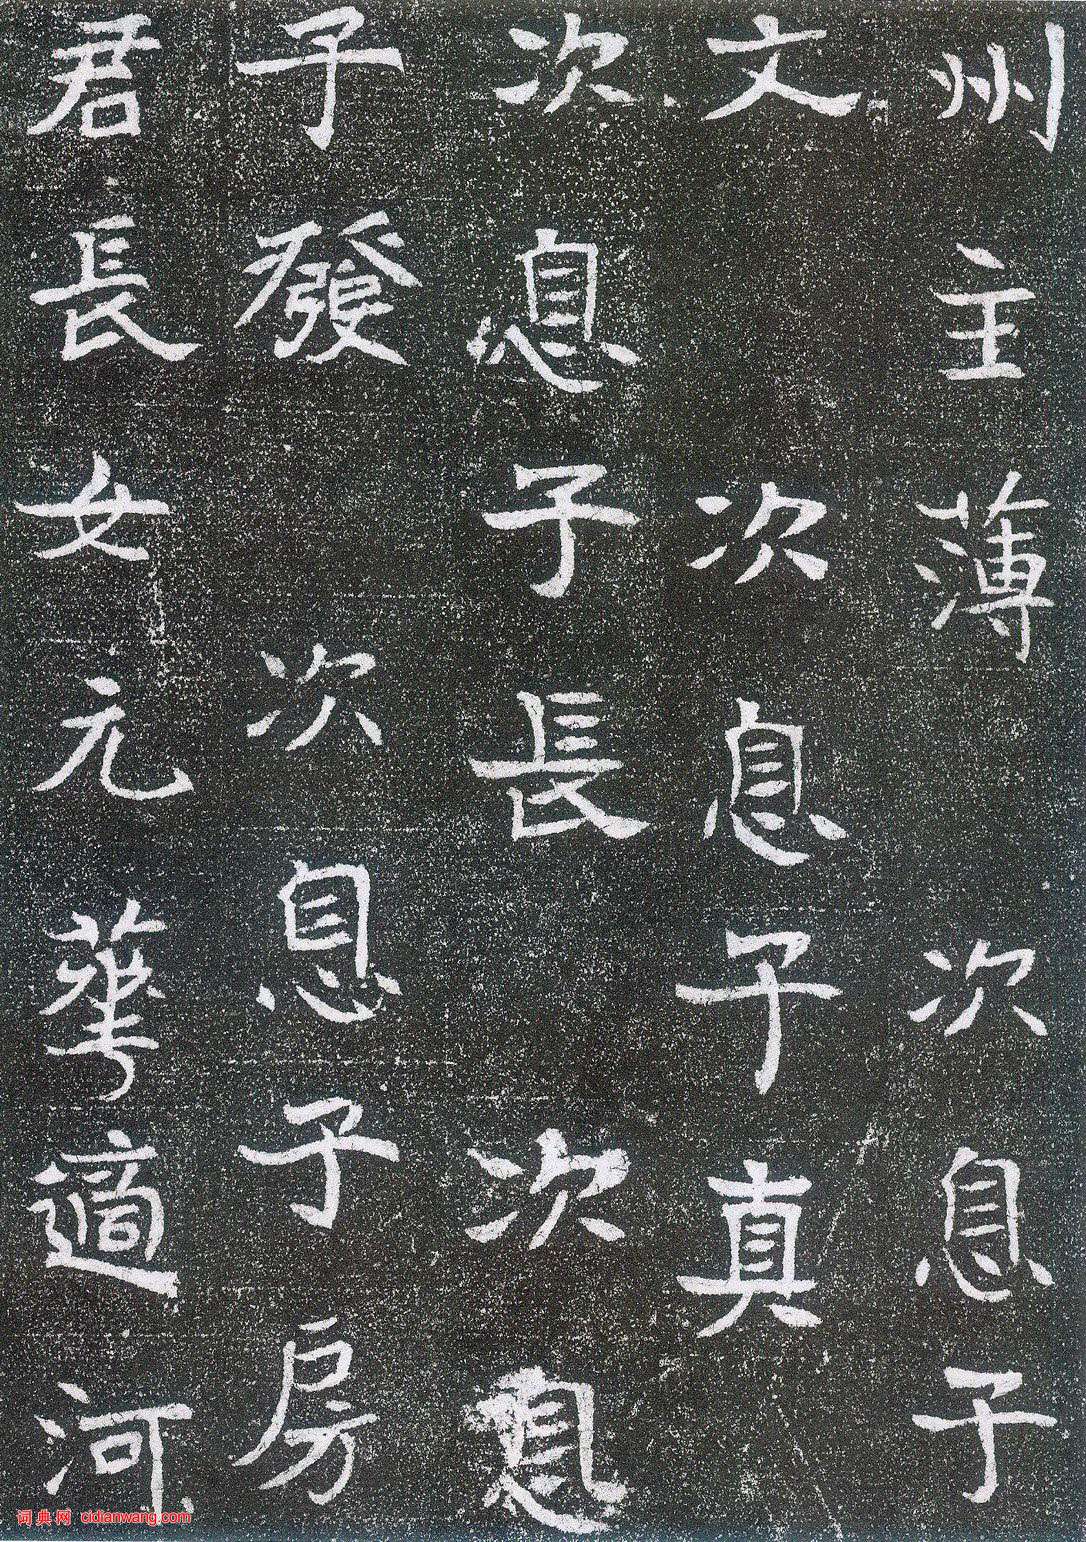 州主薄　次息子
文　次息子真
次息子長　次息
子發　次息子房
君長女元華適河
词典网 cidianwang.com